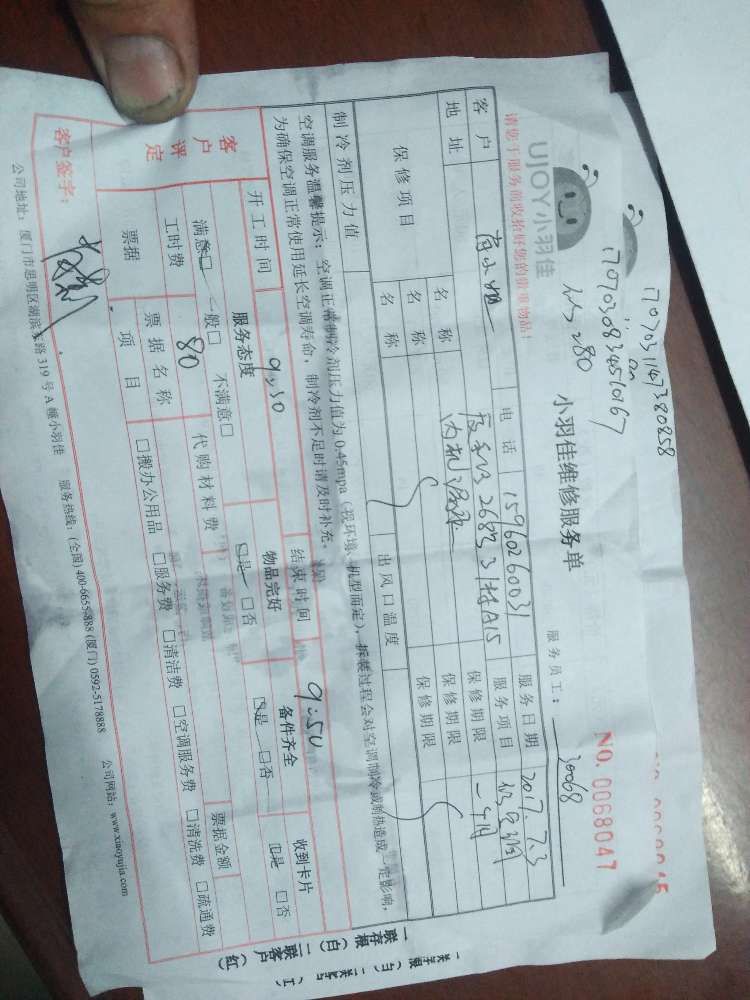 170703147380858
170703083451967
UJOY小羽佳
小羽佳维修服务单
NO. 0068047
请您于服务前收拾好您的贵重物品!
服务员工: 30068
客户
电话 15960260031
服务日期 2017.7.3
地址
服务项目
保修项目
名称
保修期限
名称
保修期限
名称
保修期限
制冷剂压力值
出风口温度
空调服务温馨提示: 空调正常制冷剂压力值为0.45mpa (视环境、机型而定), 拆装过程会对空调制冷或制热造成一定影响,
为确保空调正常使用延长空调寿命, 制冷剂不足时请及时补充。
开工时间 9:30
结束时间 9:50
客户评定
服务态度
物品完好
备件齐全
收到卡片
满意□ 一般□ 不满意□
□是 □否
□是 □否
□是 □否
工时费 80
代购材料费
票据
票据名称
票据金额
项目
□搬办公用品 □服务费 □清洁费 □空调服务费 □清洗费 □疏通费
客户签字:
公司地址: 厦门市思明区湖滨东路319号A幢小羽佳 服务热线: (全国) 400-6655-888 (厦门) 0592-5178888 公司网站: www.xiaoyujia.com
一联存根 (白) 二联客户 (红)